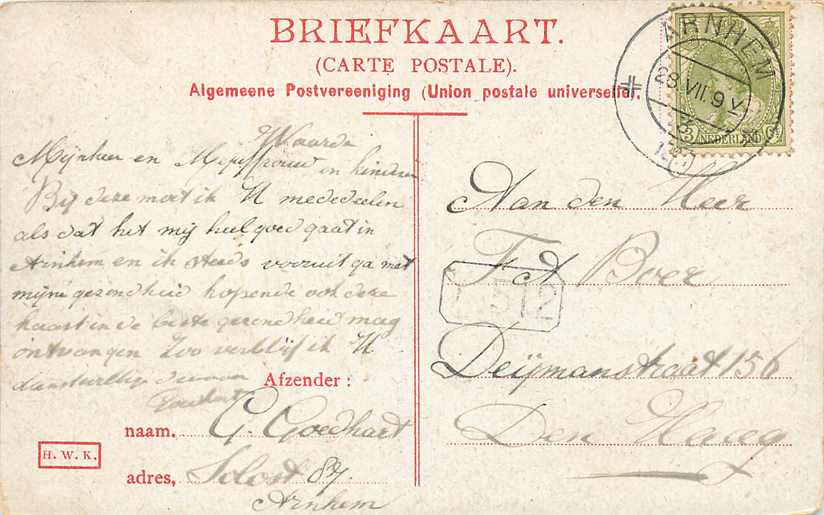 BRIEFKAART.
(CARTE POSTALE).
Algemeene Postvereeniging (Union postale universelle).
ARNHEM
28.VII.9 V.
3 NEDERLAND Ct
Waarde
Mijnheer en Mejuffrouw en kinderen
Bij deze moet ik U mededeelen
als dat het mij heel goed gaat in
Arnhem en ik steeds vooruit ga met
mijne gezondheid hopende ook deze
kaart in de beste gezondheid mag
ontvangen Zoo verblijf ik U
Afzender:
naam. G. Goedhart
adres, 87
Arnhem
H. W. K.
Aan den Heer
F A Boer
Deijmanstraat 156
Den Haag